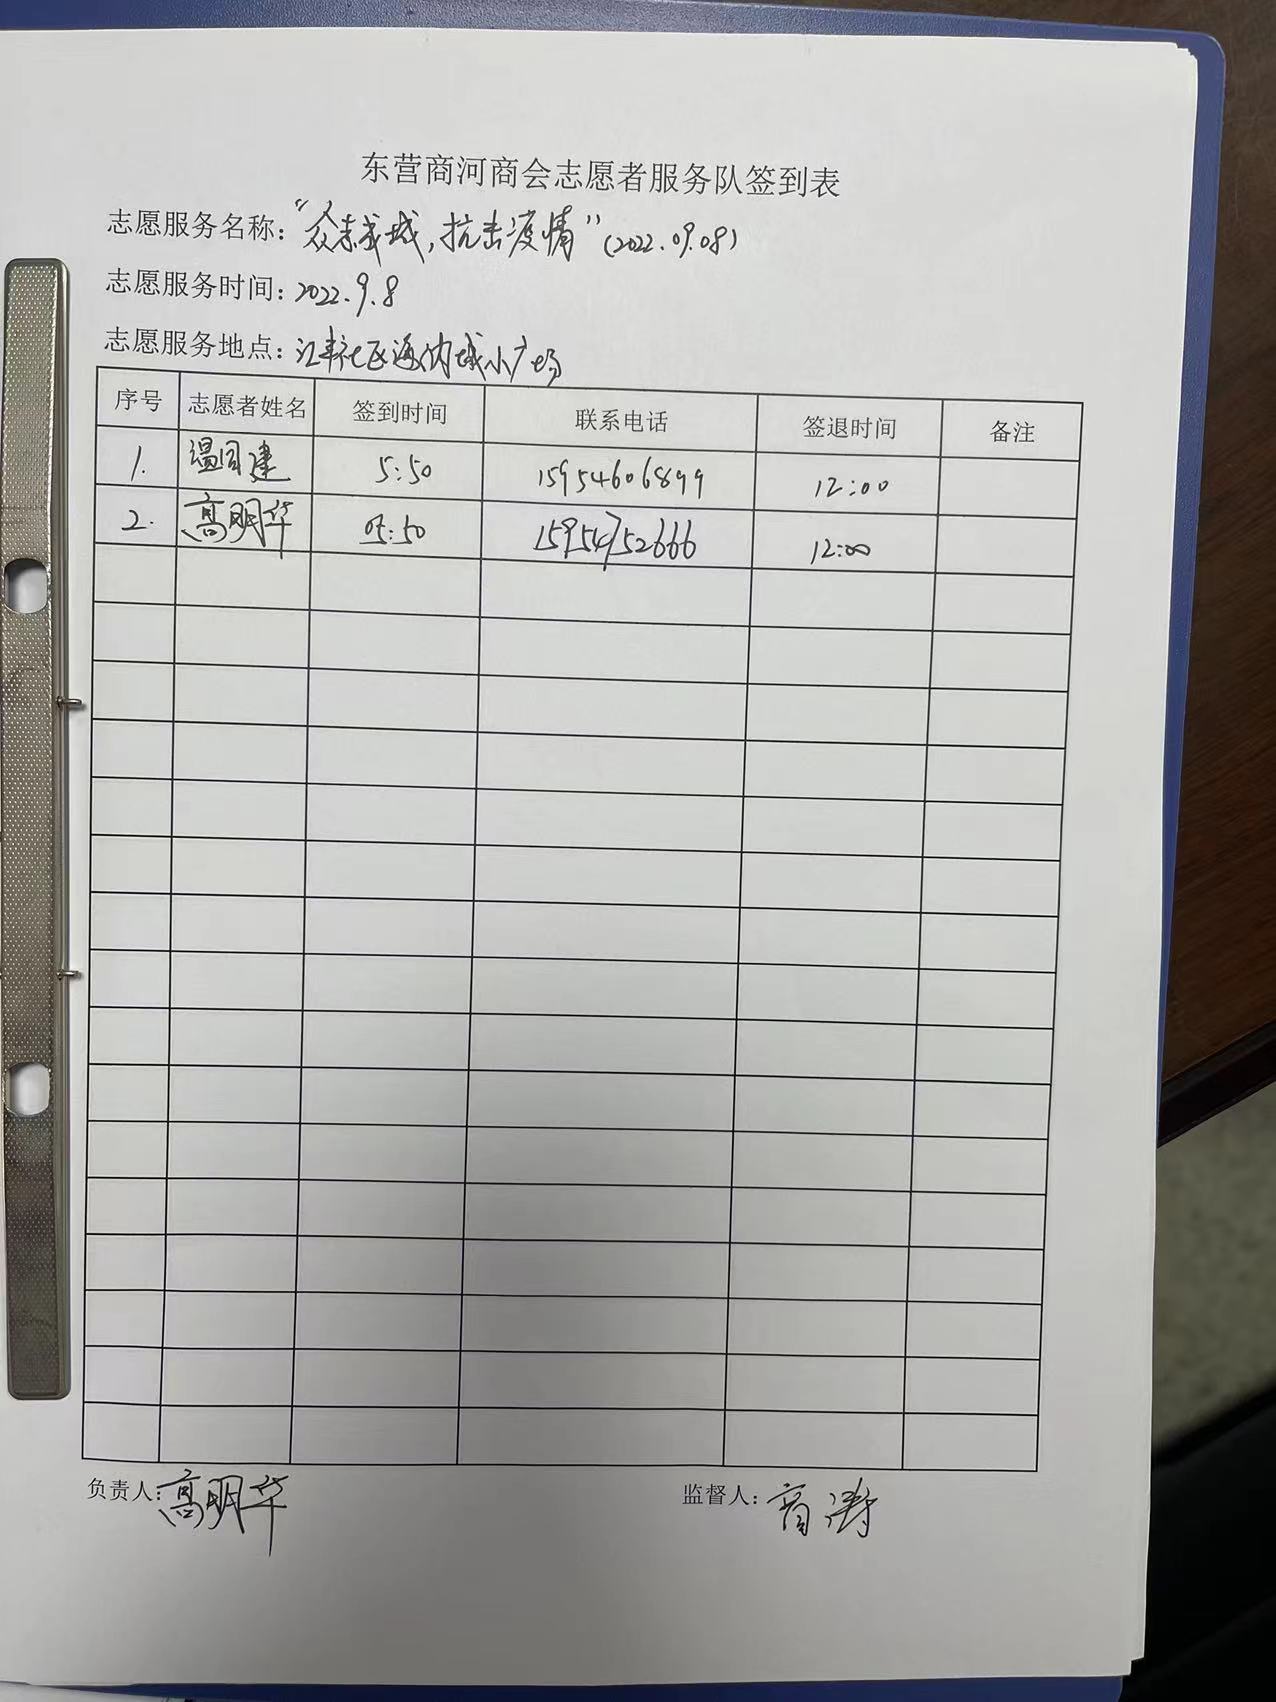 东营商河商会志愿者服务队签到表
志愿服务名称:“众志成城,抗击疫情”(2022.09.08)
志愿服务时间:2022.9.8
志愿服务地点:汇丰社区海内城小广场
序号 志愿者姓名 签到时间 联系电话 签退时间 备注
1. 温同建 5:50 15954606899 12:00
2. 高明华 05:50 15954752666 12:00
负责人:高明华 监督人: